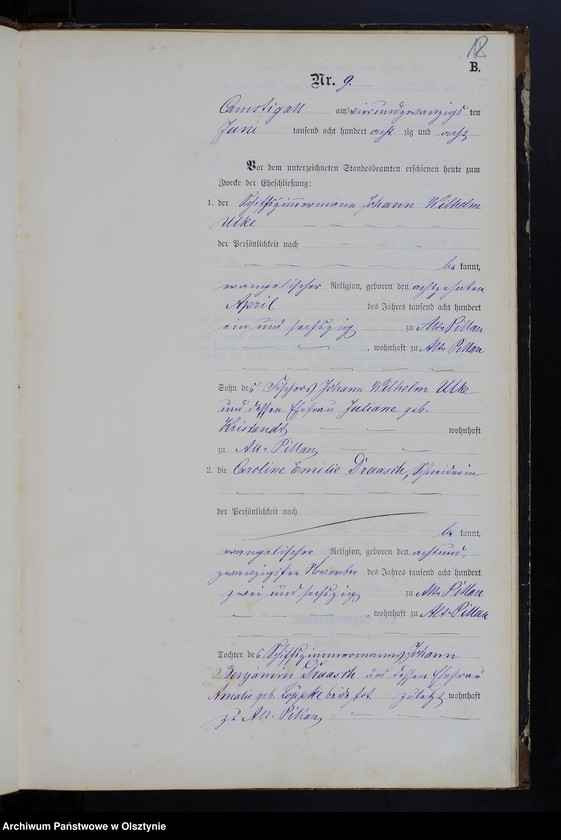 18
B.
Nr. 9.
Camstigall am vierundzwanzigs ten
Juni tausend acht hundert acht zig und acht
Vor dem unterzeichneten Standesbeamten erschienen heute zum
Zwecke der Eheschließung:
1. der Schiffszimmermann Johann Wilhelm
Ulke
der Persönlichkeit nach
be kannt,
evangelischer Religion, geboren den achtzehnten
April des Jahres tausend acht hundert
ein und sechszig zu Alt-Pillau
, wohnhaft zu Alt-Pillau
Sohn des Fischers Johann Wilhelm Ulke
und dessen Ehefrau Juliane geb.
Kristandt wohnhaft
zu Alt-Pillau
2. die Caroline Emilie Draasch, Schneiderin
der Persönlichkeit nach
be kannt,
evangelischer Religion, geboren den achtund-
zwanzigsten November des Jahres tausend acht hundert
zwei und sechszig zu Alt-Pillau
, wohnhaft zu Alt-Pillau
Tochter des Schiffszimmermanns Johann
Benjamin Draasch und dessen Ehefrau
Amalie geb. beide tot zuletzt wohnhaft
zu Alt-Pillau
Archiwum Państwowe w Olsztynie